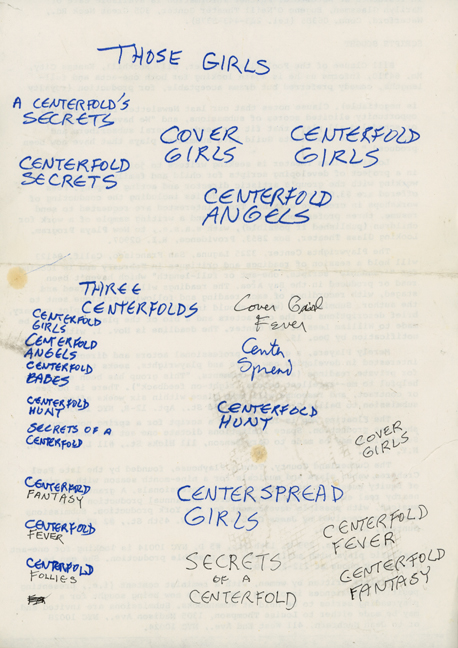 THOSE GIRLS
A CENTERFOLD'S
SECRETS
COVER
GIRLS
CENTERFOLD
GIRLS
CENTERFOLD
SECRETS
CENTERFOLD
ANGELS
THREE
CENTERFOLDS
CENTERFOLD
GIRLS
CENTERFOLD
ANGELS
CENTERFOLD
BABES
CENTERFOLD
HUNT
SECRETS OF A
CENTERFOLD
Cover
Fever
Center
Spread
CENTERFOLD
HUNT
COVER
GIRLS
CENTERFOLD
FANTASY
CENTERFOLD
FEVER
CENTERFOLD
FOLLIES
CENTERSPREAD
GIRLS
SECRETS
OF A
CENTERFOLD
CENTERFOLD
FEVER
CENTERFOLD
FANTASY